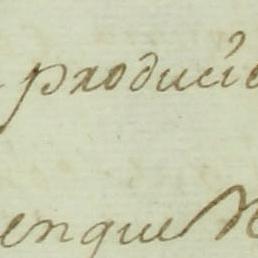 producie
enque